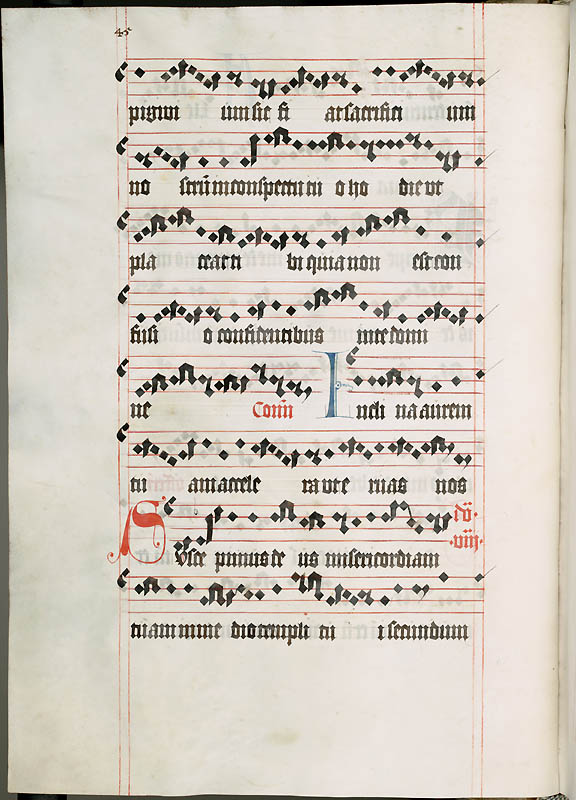 45
pigwi ium sic fi at sacrifici um
no strū in conspectu tu o ho die ut
pla ceat ti bi quia non est con
fusi o confidentibus in te domi
ne Com̄ I ncli na aurem
tu am accele ra ut e ruas nos
S vsce pimus de us misericordiam dō· ·viii·
tuam in me dio templi tu i secundum